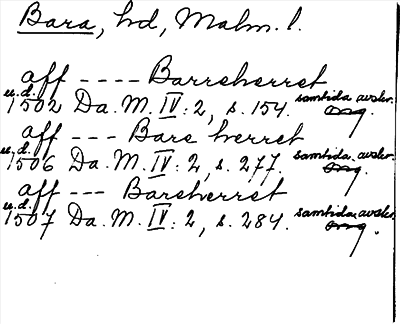 Bara, hd, Malm. l.
aff ---- Barreherret
u.d. 1502 Da. M. IV: 2, s. 154. samtida avskr. orig.
aff --- Bare herret
u.d. 1506 Da. M. IV: 2, s. 277. samtida avskr. orig.
aff --- Bareherret
u.d. 1507 Da. M. IV: 2, s. 284. samtida avskr. orig.